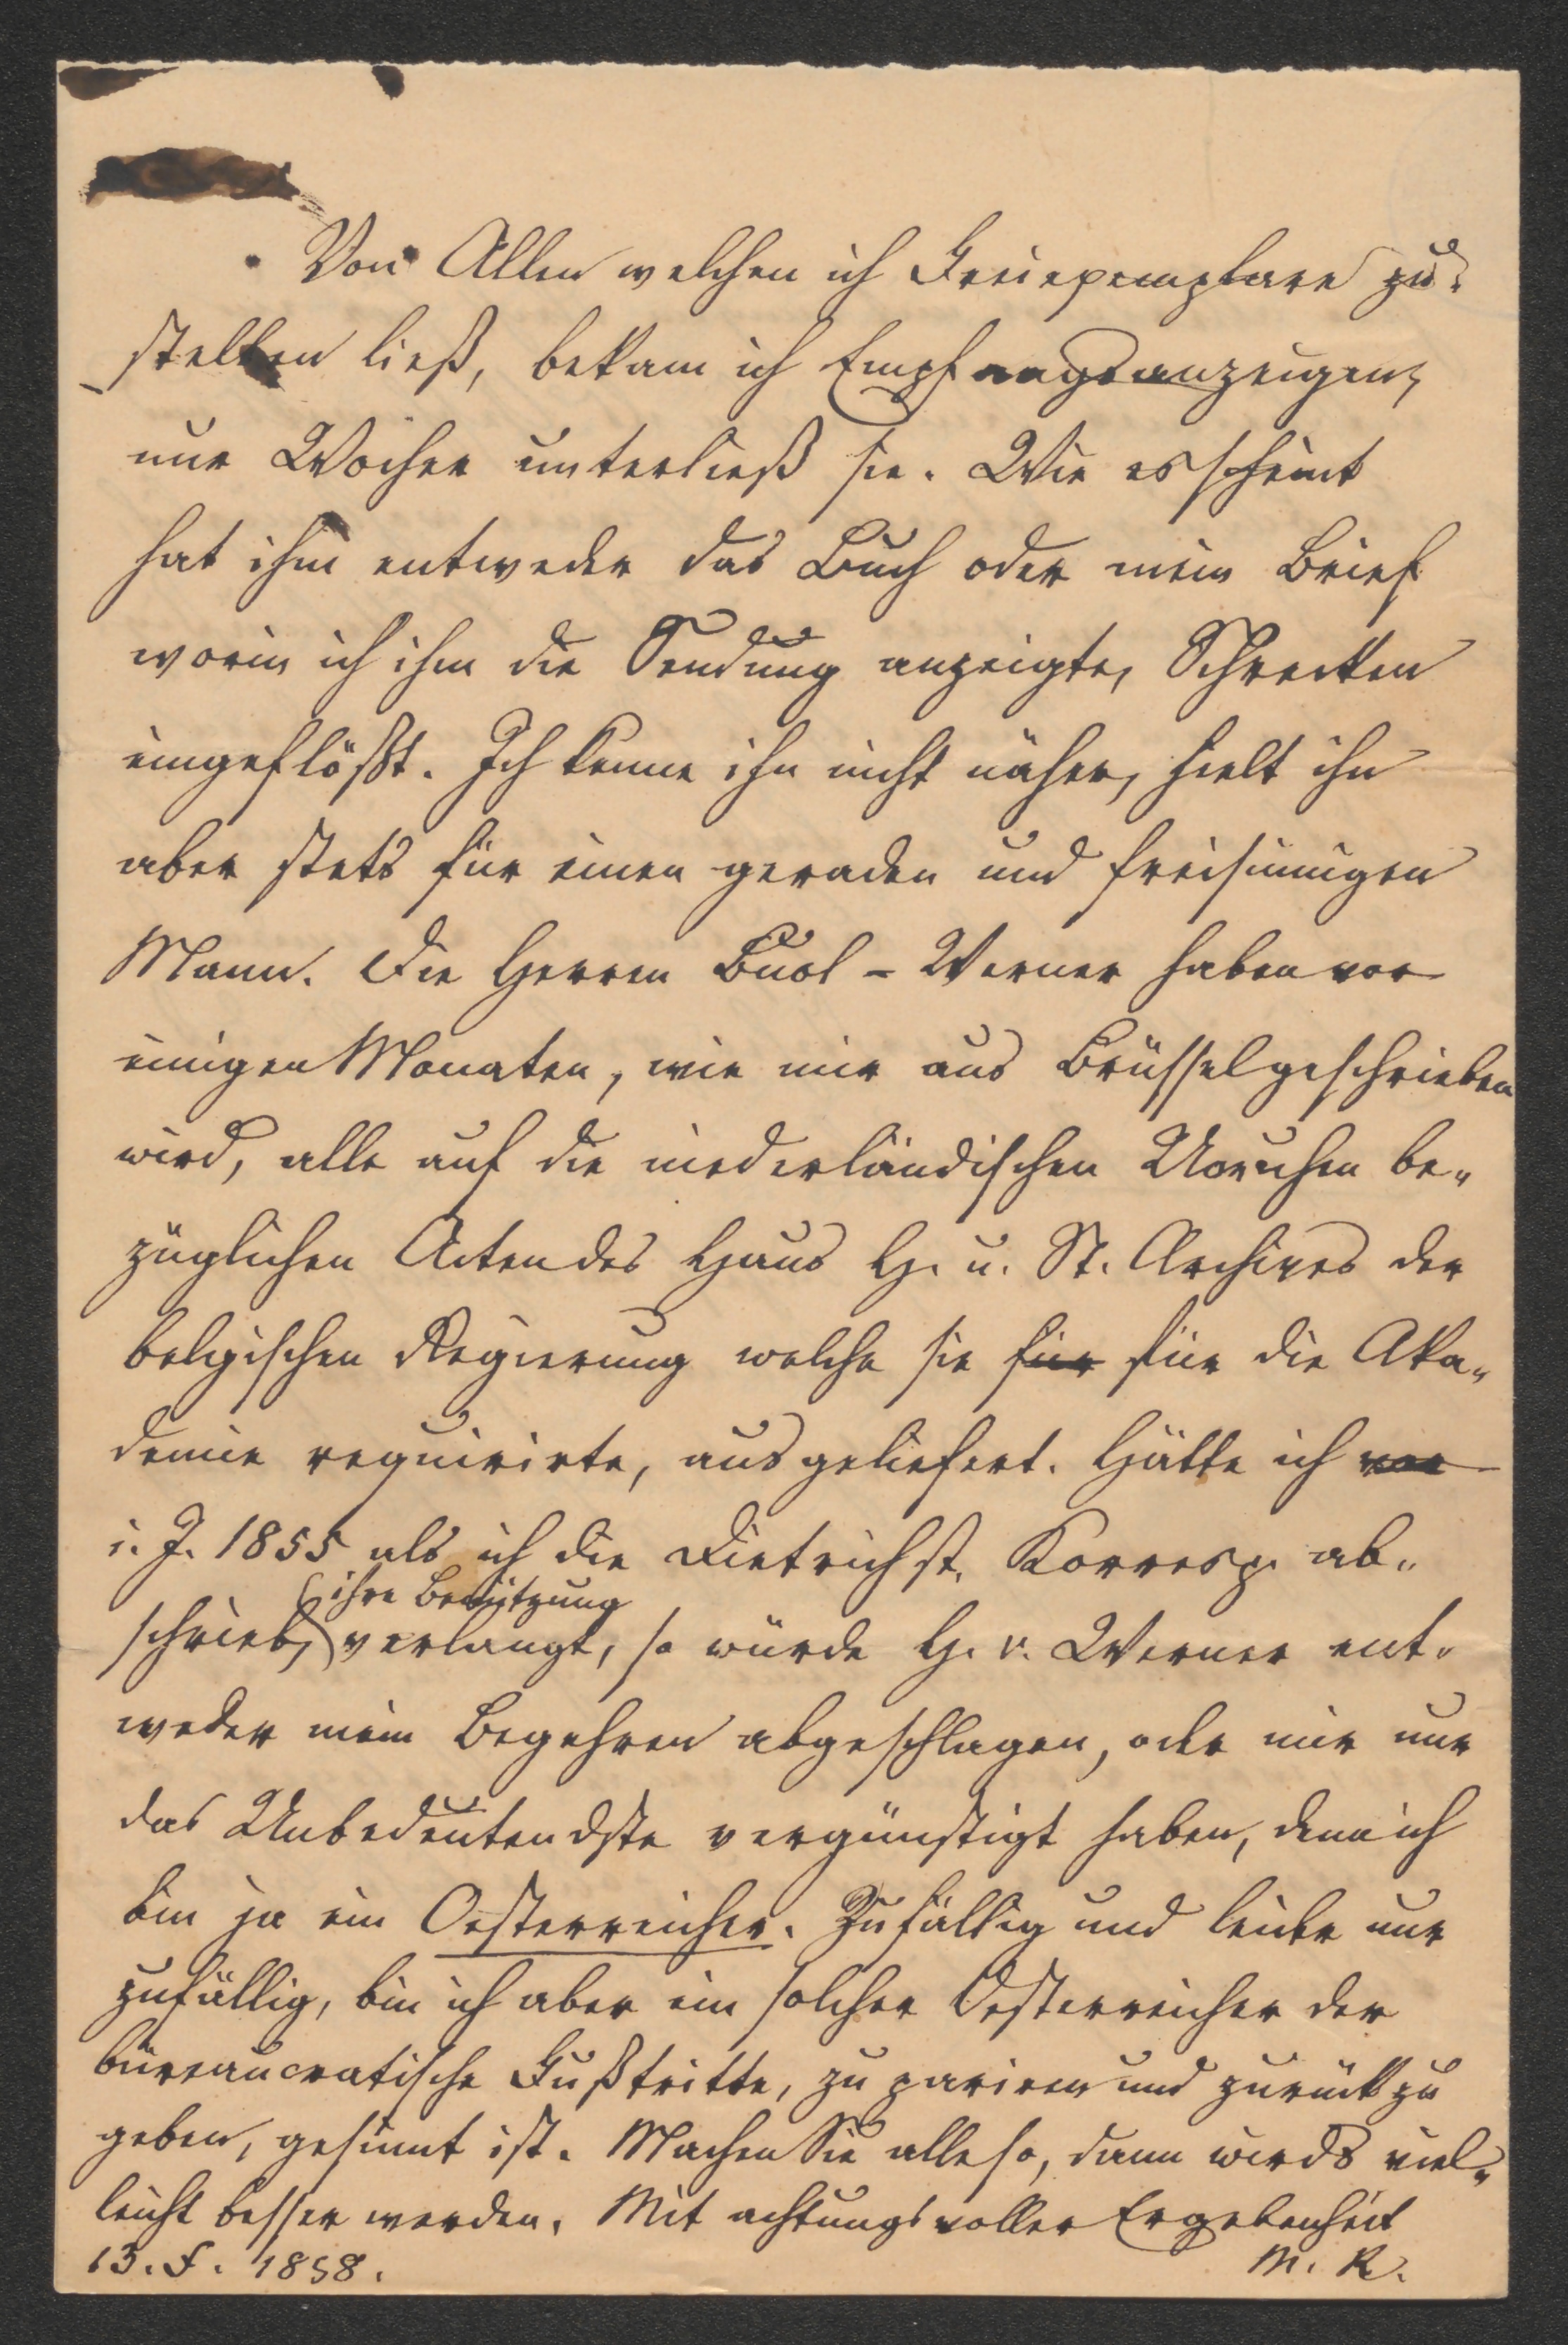 Von Allen welchen ich Freiexemplare zu-
stellen ließ, bekam ich Empfangsanzeigen,
nur Wocher unterließ sie. Wie es scheint
hat ihm entweder das Buch oder mein Brief
worin ich ihm die Sendung anzeigte, Schrecken
eingeflößt. Ich kenne ihn nicht näher, hielt ihn
aber stets für einen geraden und freisinnigen
Mann. Die Herren Buol - Werner haben vor
einigen Monaten, wie mir aus Brüssel geschrieben
wird, alle auf die niederländischen Unruhen be-
züglichen Acten des Haus H. u. St. Archives der
belgischen Regierung welche sie für für die Aka-
demie requirirte, ausgeliefert. Hätte ich vor
i. J. 1855 als ich die Dietrichst. Korresp. ab-
ihre Benützung
schrieb, verlangt, so würde H. v. Werner ent-
weder mein Begehren abgeschlagen, oder mir nur
das Unbedeutendste vergünstigt haben, denn ich
bin ja ein Oesterreicher. Zufällig und leider nur
zufällig, bin ich aber ein solcher Oesterreicher der
büreaucratische Fußtritte, zu pariren und zurückzu
geben, gesinnt ist. Machen Sie alle so, dann wirds viel-
leicht besser werden. Mit achtungsvoller Ergebenheit
13. F. 1858. M. K.